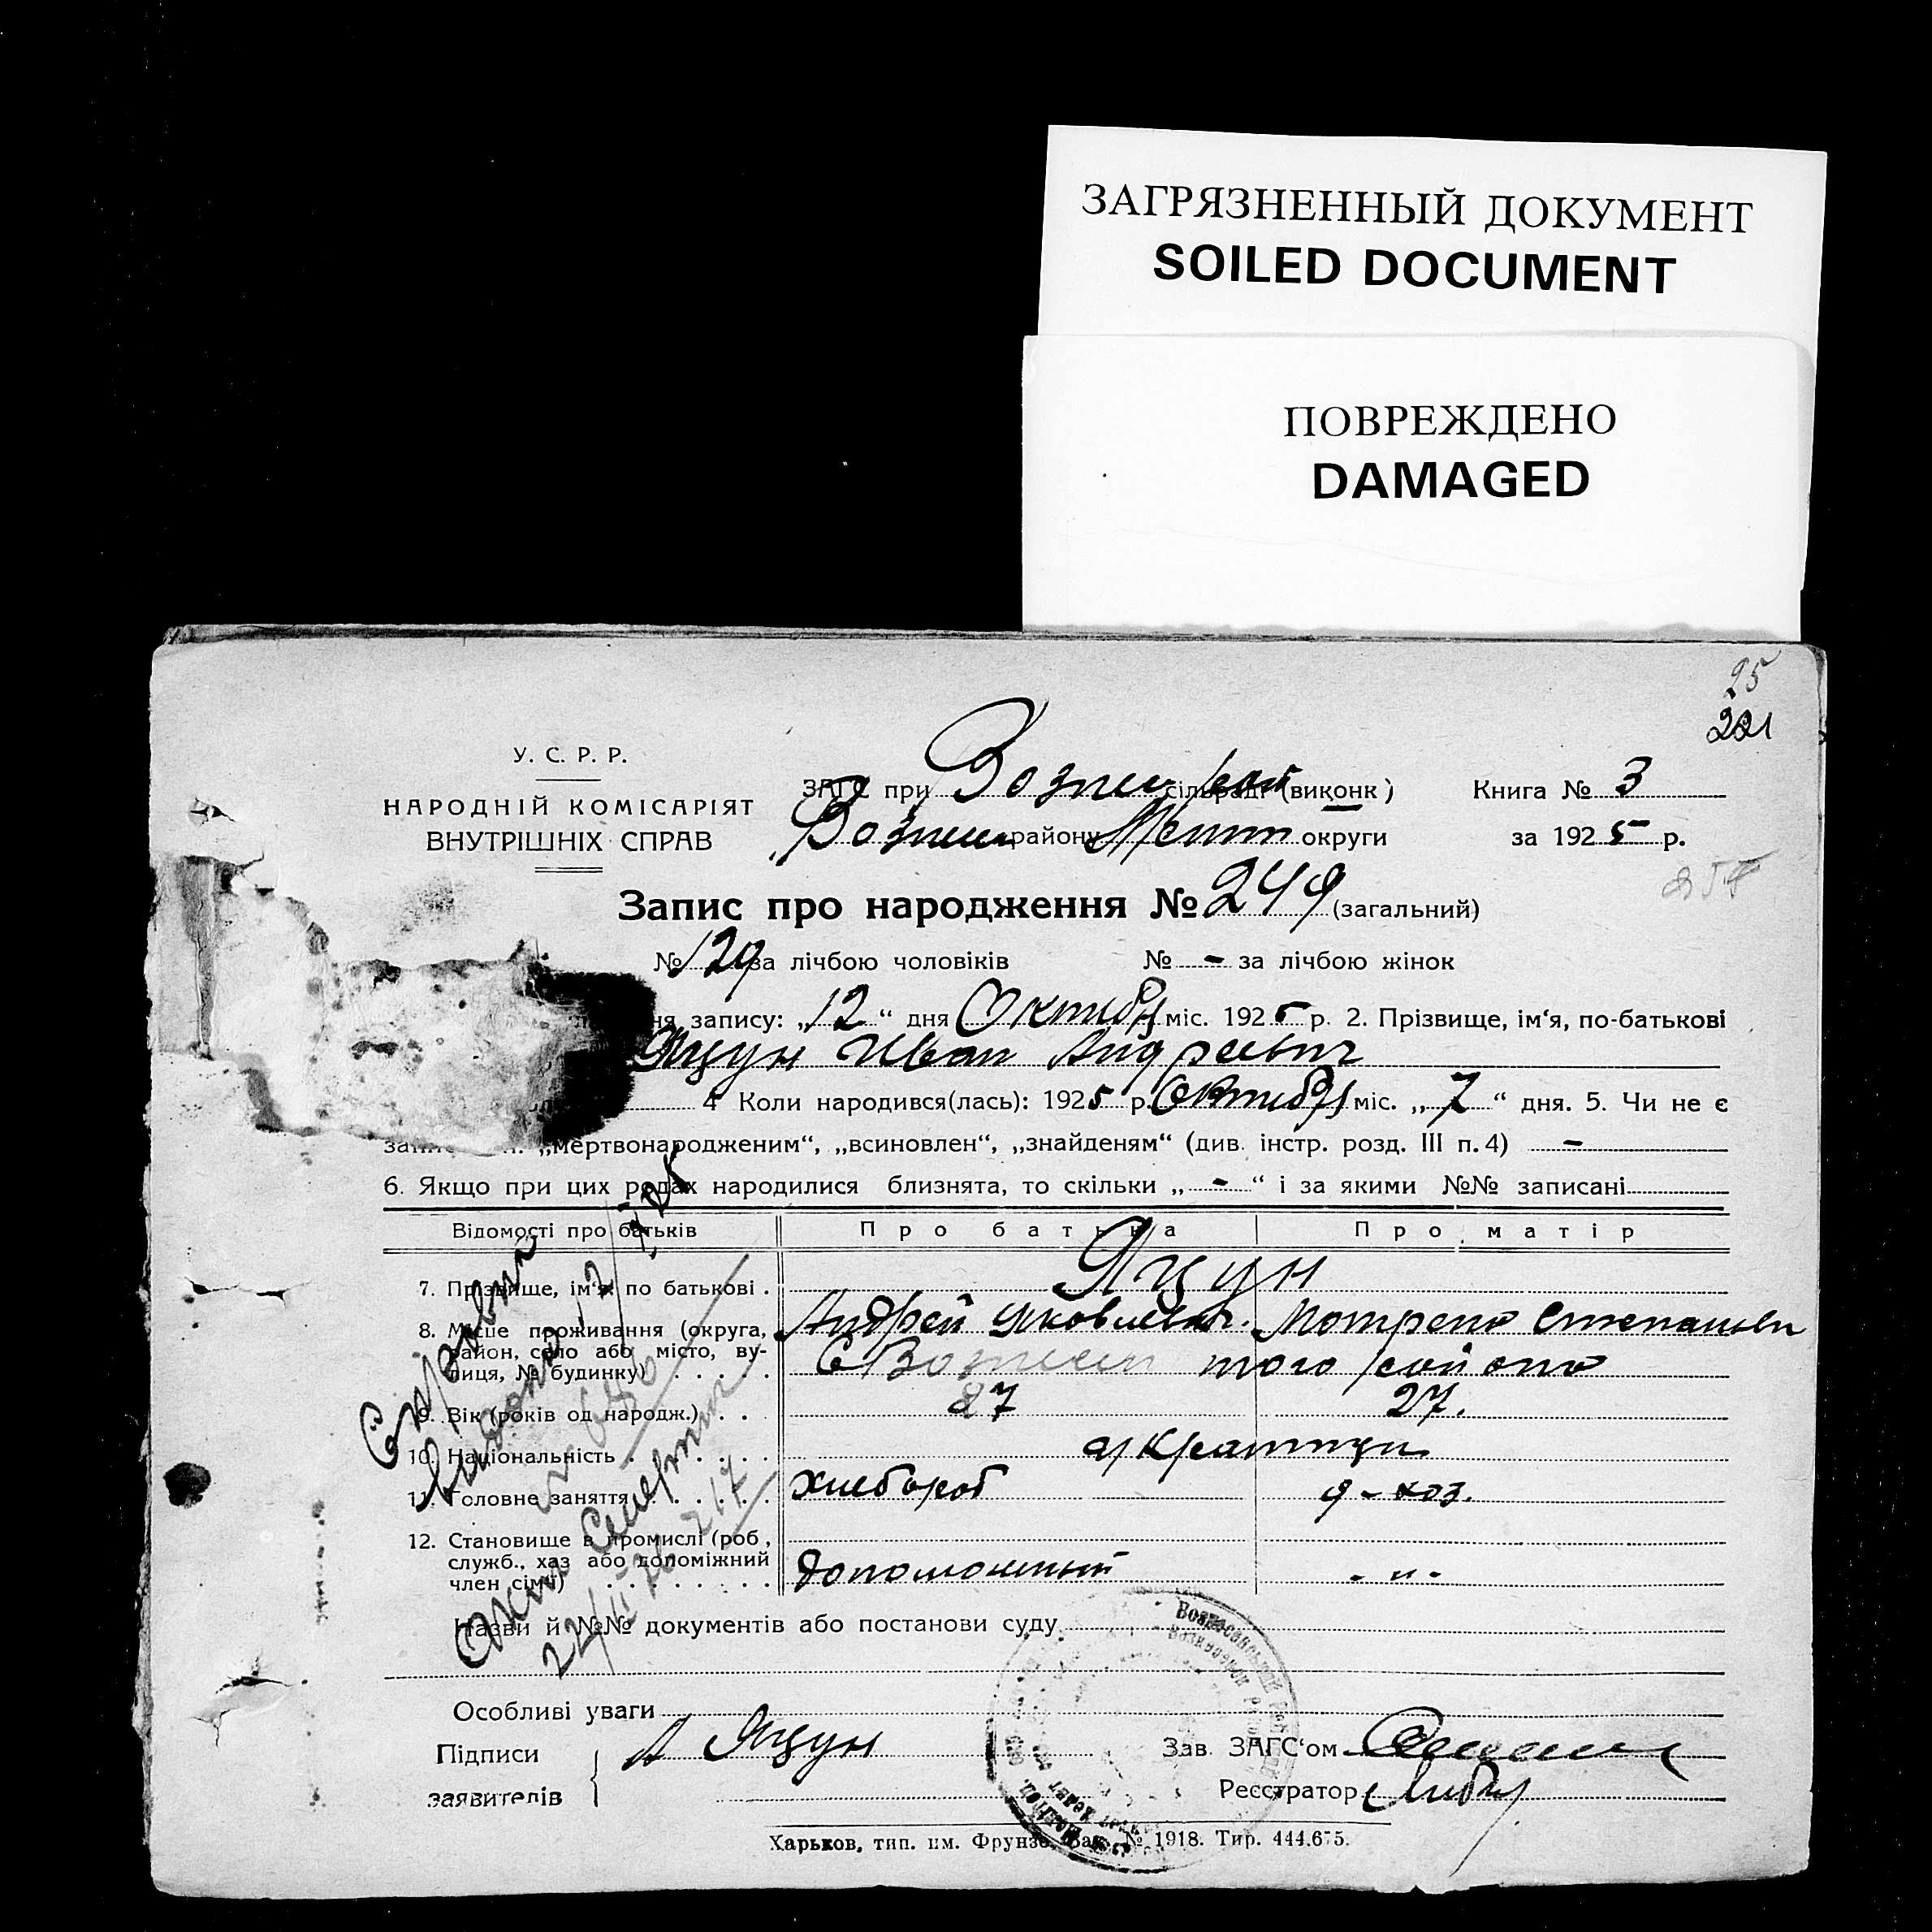 ЗАГРЯЗНЕННЫЙ ДОКУМЕНТ
SOILED DOCUMENT
ПОВРЕЖДЕНО
DAMAGED
25
221
У. С. Р. Р.
НАРОДНІЙ КОМІСАРІЯТ
ВНУТРІШНІХ СПРАВ
ЗАГС при сільраді (виконк)
району округи
Книга № 3
за 1925 р.
Запис про народження № 249 (загальний)
№ 129 за лічбою чоловіків № - за лічбою жінок
запису: „12“ дня Октября міс. 1925 р. 2. Прізвище, ім‘я, по-батькові
Яцун Иван Андреевич
4 Коли народився(лась): 1925 р. Октября міс. „7“ дня. 5. Чи не є
„мертвонародженим“, „всиновлен“, „знайденям“ (див. інстр. розд. III п. 4) -
6. Якщо при цих родах народилися близнята, то скільки „-“ і за якими №№ записані
Відомості про батьків Про батька Про матір
7. Прізвище, ім‘я, по батькові . Яцун
8. Місце проживання (округа, Андрей Яковлевич. Мотрена Степановн
район, село або місто, ву-
лиця, № будинку) . . . . . того района
9. Вік (років од народж.) . . 27 27.
10. Національність . . . . . . украинцы
11. Головне заняття . . . . . . хлебороб д-хоз.
12. Становище в промислі (роб,
служб., хаз або допоміжний
член сім‘ї) . . . . . . . . . допоможный - " -
Назви й №№ документів або постанови суду
Особливі уваги
Підписи
заявителів
А Яцун
Зав. ЗАГС‘ом
Реєстратор
Харьков, тип. им. Фрунзе. Зак. № 1918. Тир. 444.675.